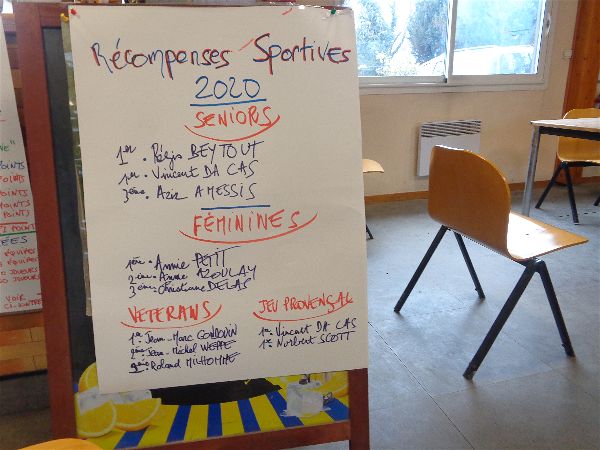 Récompenses Sportives
2020
SENIORS
1er. Régis BEYTOUT
1er. Vincent DA CAS
3ème. Aziz AMESSIS
FÉMININES
1ère. Annie PETIT
2ème. Annie AZOULAY
3ème. Christiane DELAS
VETERANS
1er Jean-Marc GONDOUIN
2ème. Jean-Michel WEPPE
3ème. Roland MILHOMME
JEU PROVENÇAL
1er. Vincent DA CAS
1er. Norbert SCOTT
POINTS
POINTS
POINTS
POINTS
POINTS
POINT
JOUEURS
VOIR
CI-CONTRE